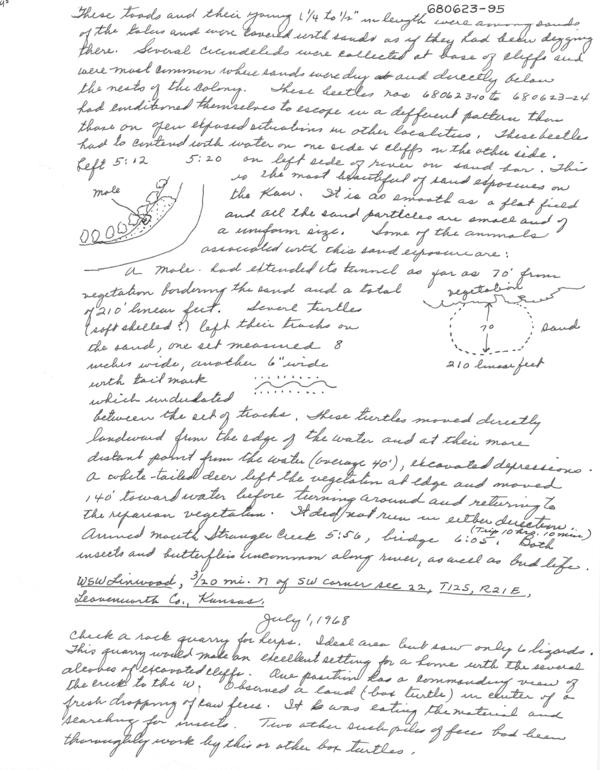 680623-95
These toads and their young 1 1/4 to 1 1/2" in length were among sands
of the talus and were covered with sands as if they had been digging
there. Several cicindelids were collected at base of cliffs and
were most common where sands were dry and directly below
the nests of the colony. These beetles nos 680623-10 to 680623-24
had conditioned themselves to escape in a different pattern than
those on open exposed situations in other localities. These beetles
had to contend with water on one side & cliffs on the other side.
Left 5:12 5:20 on left side of river on sand bar. This
is the most beautiful of sand exposures on
mole
the Kaw. It is as smooth as a flat field
and all the sand particles are small and of
a uniform size. Some of the animals
associated with this sand exposure are:
A mole had extended its tunnel as far as 70' from
vegetation bordering the sand and a total
vegetation
of 210' linear feet. Several turtles
(soft shelled?) left their tracks on
70 sand
the sand, one set measured 8
inches wide, another 6" wide
210 linear feet
with tail mark
which undulated
between the set of tracks. These turtles moved directly
landward from the edge of the water and at their more
distant point from the water (average 40'), excavated depressions.
A white-tailed deer left the vegetation at edge and moved
140' toward water before turning around and returning to
the riparian vegetation. It did not run in either direction.
(Trip 10 hrs. 10 mins)
Arrived mouth Stranger Creek 5:56, bridge 6:05. Both
insects and butterflies uncommon along river, as well as bird life.
WSW Linwood, 3/20 mi. N of SW corner sec 22, T12S, R21E,
Leavenworth Co., Kansas.
July 1, 1968
Check a rock quarry for herps. Ideal area but saw only 6 lizards.
This quarry would make an excellent setting for a home with the several
alcoves of excavated cliffs. One position has a commanding view of
the creek to the W. Observed a land (box turtle) in center of a
fresh dropping of cow feces. It was eating the material and
searching for insects. Two other such piles of feces had been
thoroughly work by this or other box turtles.